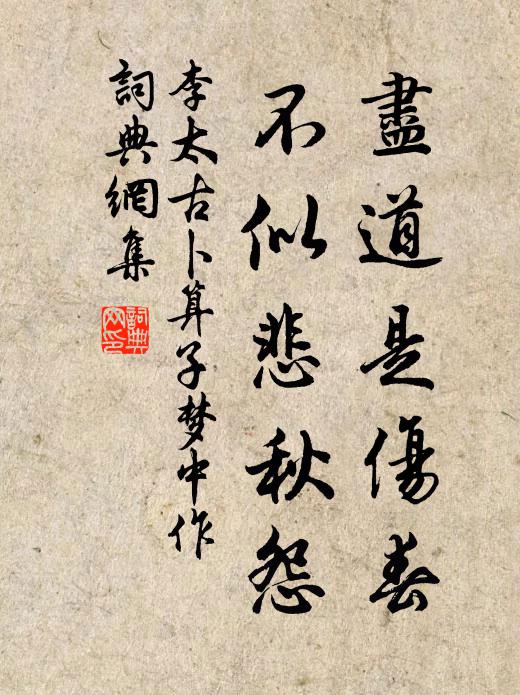 盡道是傷春
不似悲秋怨
李太古卜算子梦中作
詞典網集
詞典網印